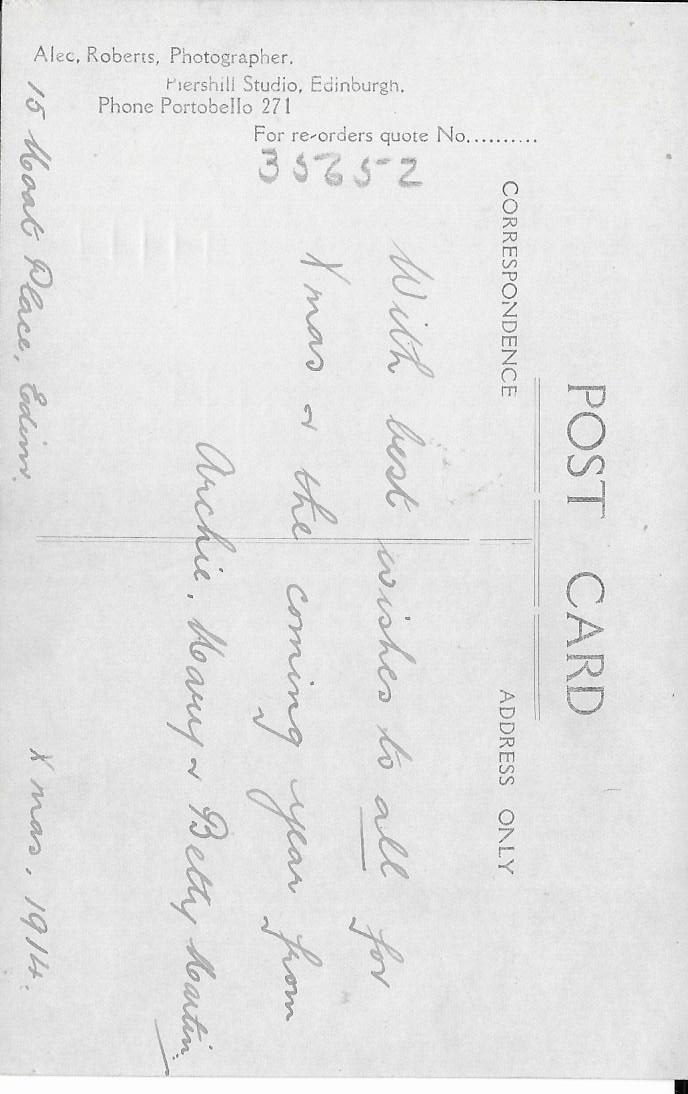 Alec, Roberts, Photographer.
Piershill Studio, Edinburgh.
Phone Portobello 271
For re-orders quote No..........
35652
POST CARD
CORRESPONDENCE
ADDRESS ONLY
With best wishes to all for
Xmas & the coming year from
Archie, Mary & Betty Martin.
15 Moat Place, Edinr.
Xmas, 1914.